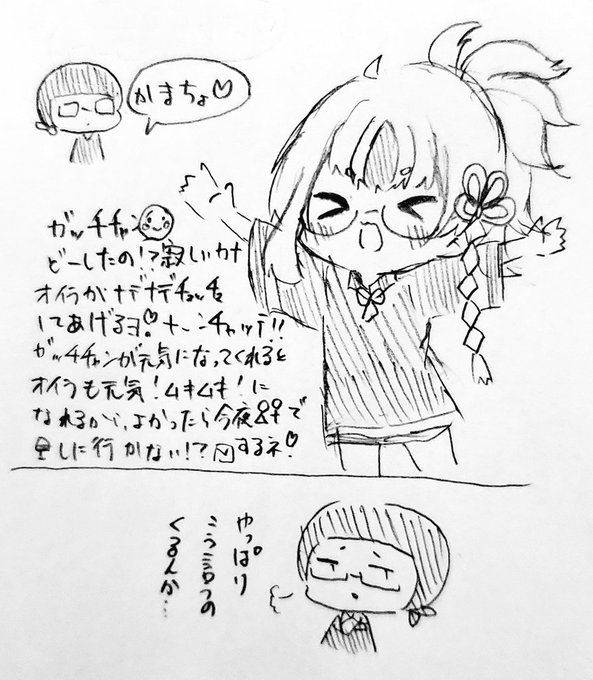 かまちょ♡
ガッチチャン
どーしたの!?寂しいカナ
オイラがナデナデチョッチョ
してあげるヨ!ナーンチャッテ!!
ガッチチャンが元気になってくれると
オイラも元気!ムキムキ!に
なれるから、よかったら今夜
しに行かない!?するネ!
やっぱり
こう言うの
くるんか…